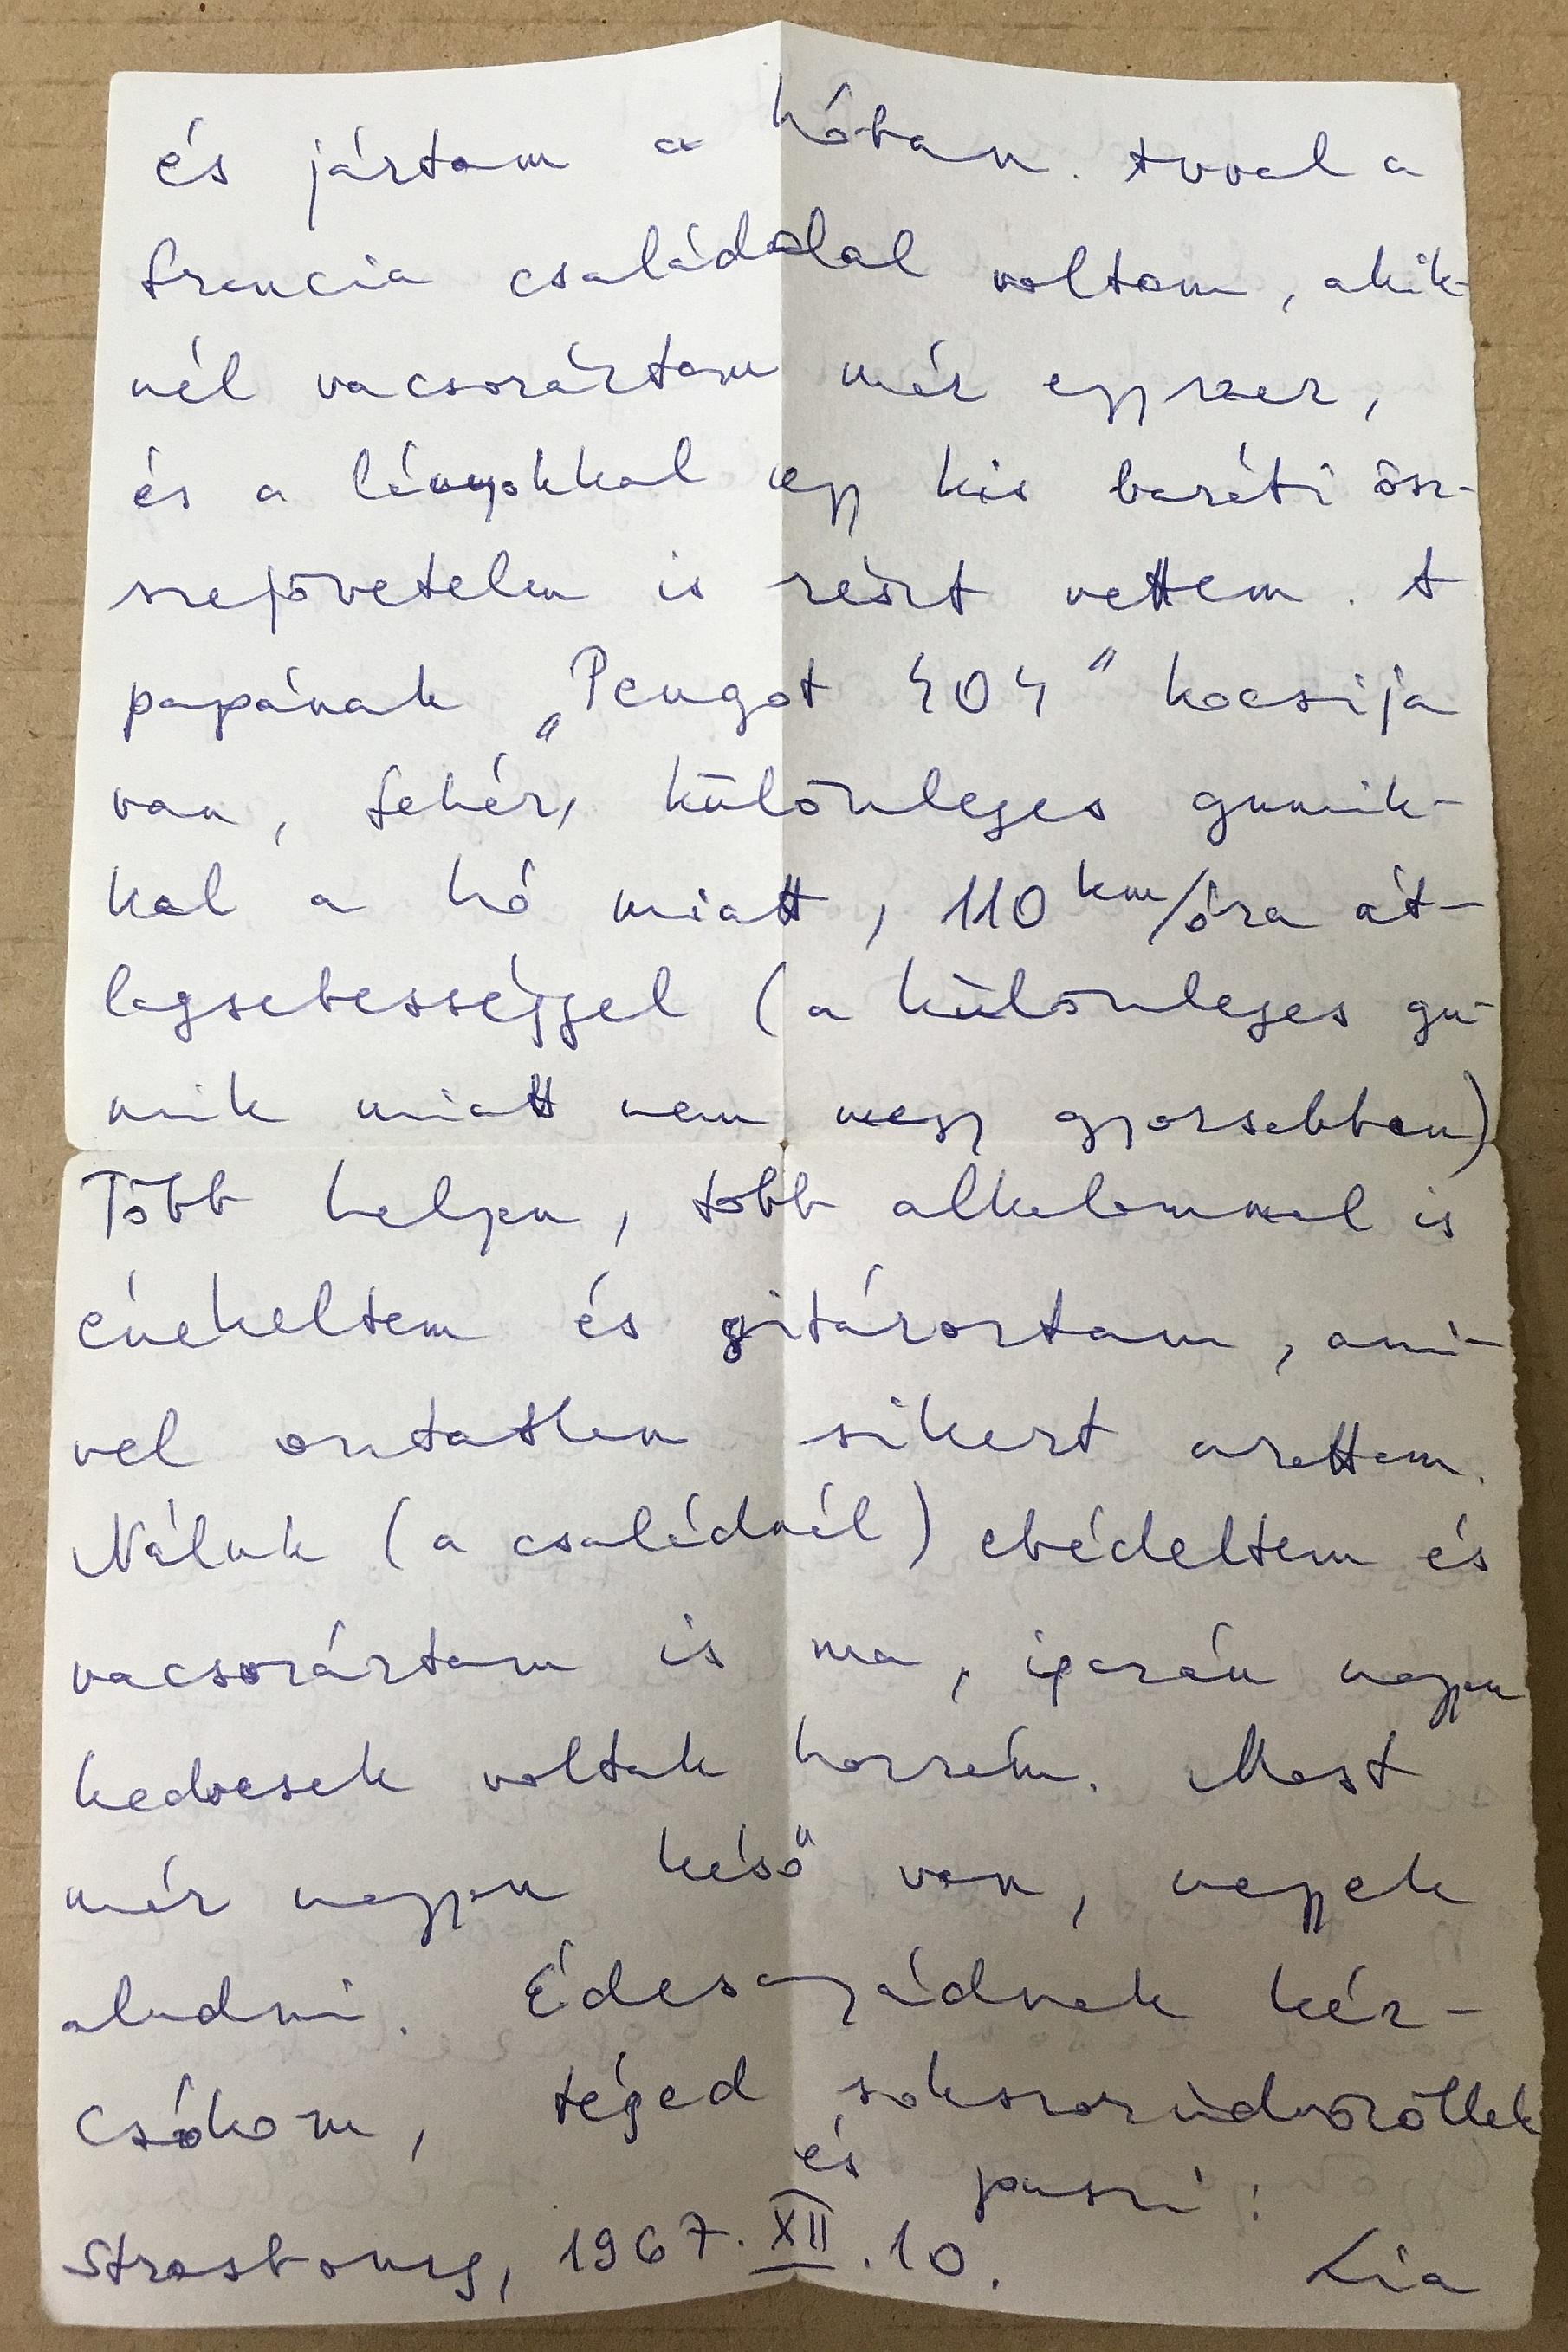 és jártam a hóban. Avval a
francia családdal voltam, akik-
nél vacsoráztam már egyszer,
és a lányokkal egy kis baráti ösz-
szejövetelen is részt vettem. A
papának „Peugot 404" kocsija
van, fehér, különleges gumik-
kal a hó miatt, 110 km/óra át-
lagsebességgel (a különleges gu-
mik miatt nem megy gyorsabban)
Több helyen, több alkalommal is
énekeltem és gitároztam, ami-
vel osztatlan sikert arattam.
Náluk (a családnál) ebédeltem és
vacsoráztam is ma, igazán nagyon
kedvesek voltak hozzám. Most
már nagyon késő van, megyek
aludni. Édesanyádnak kéz-
csókom, téged sokszor üdvözöllek
és puszi!
Strasbourg, 1967. XII. 10. Lia